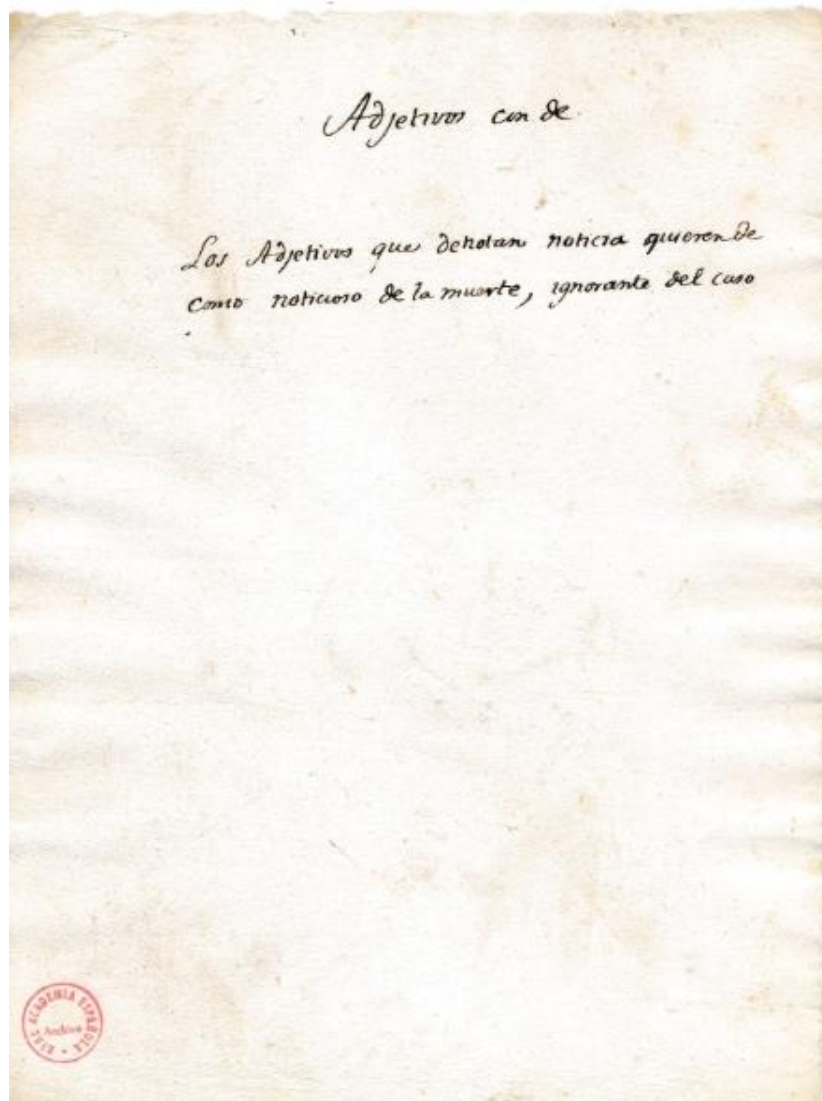 Adjetivos con de
Los Adjetivos que denotan noticia quieren de
como noticioso de la muerte, ignorante del caso
REAL ACADEMIA ESPAÑOLA
Archivo